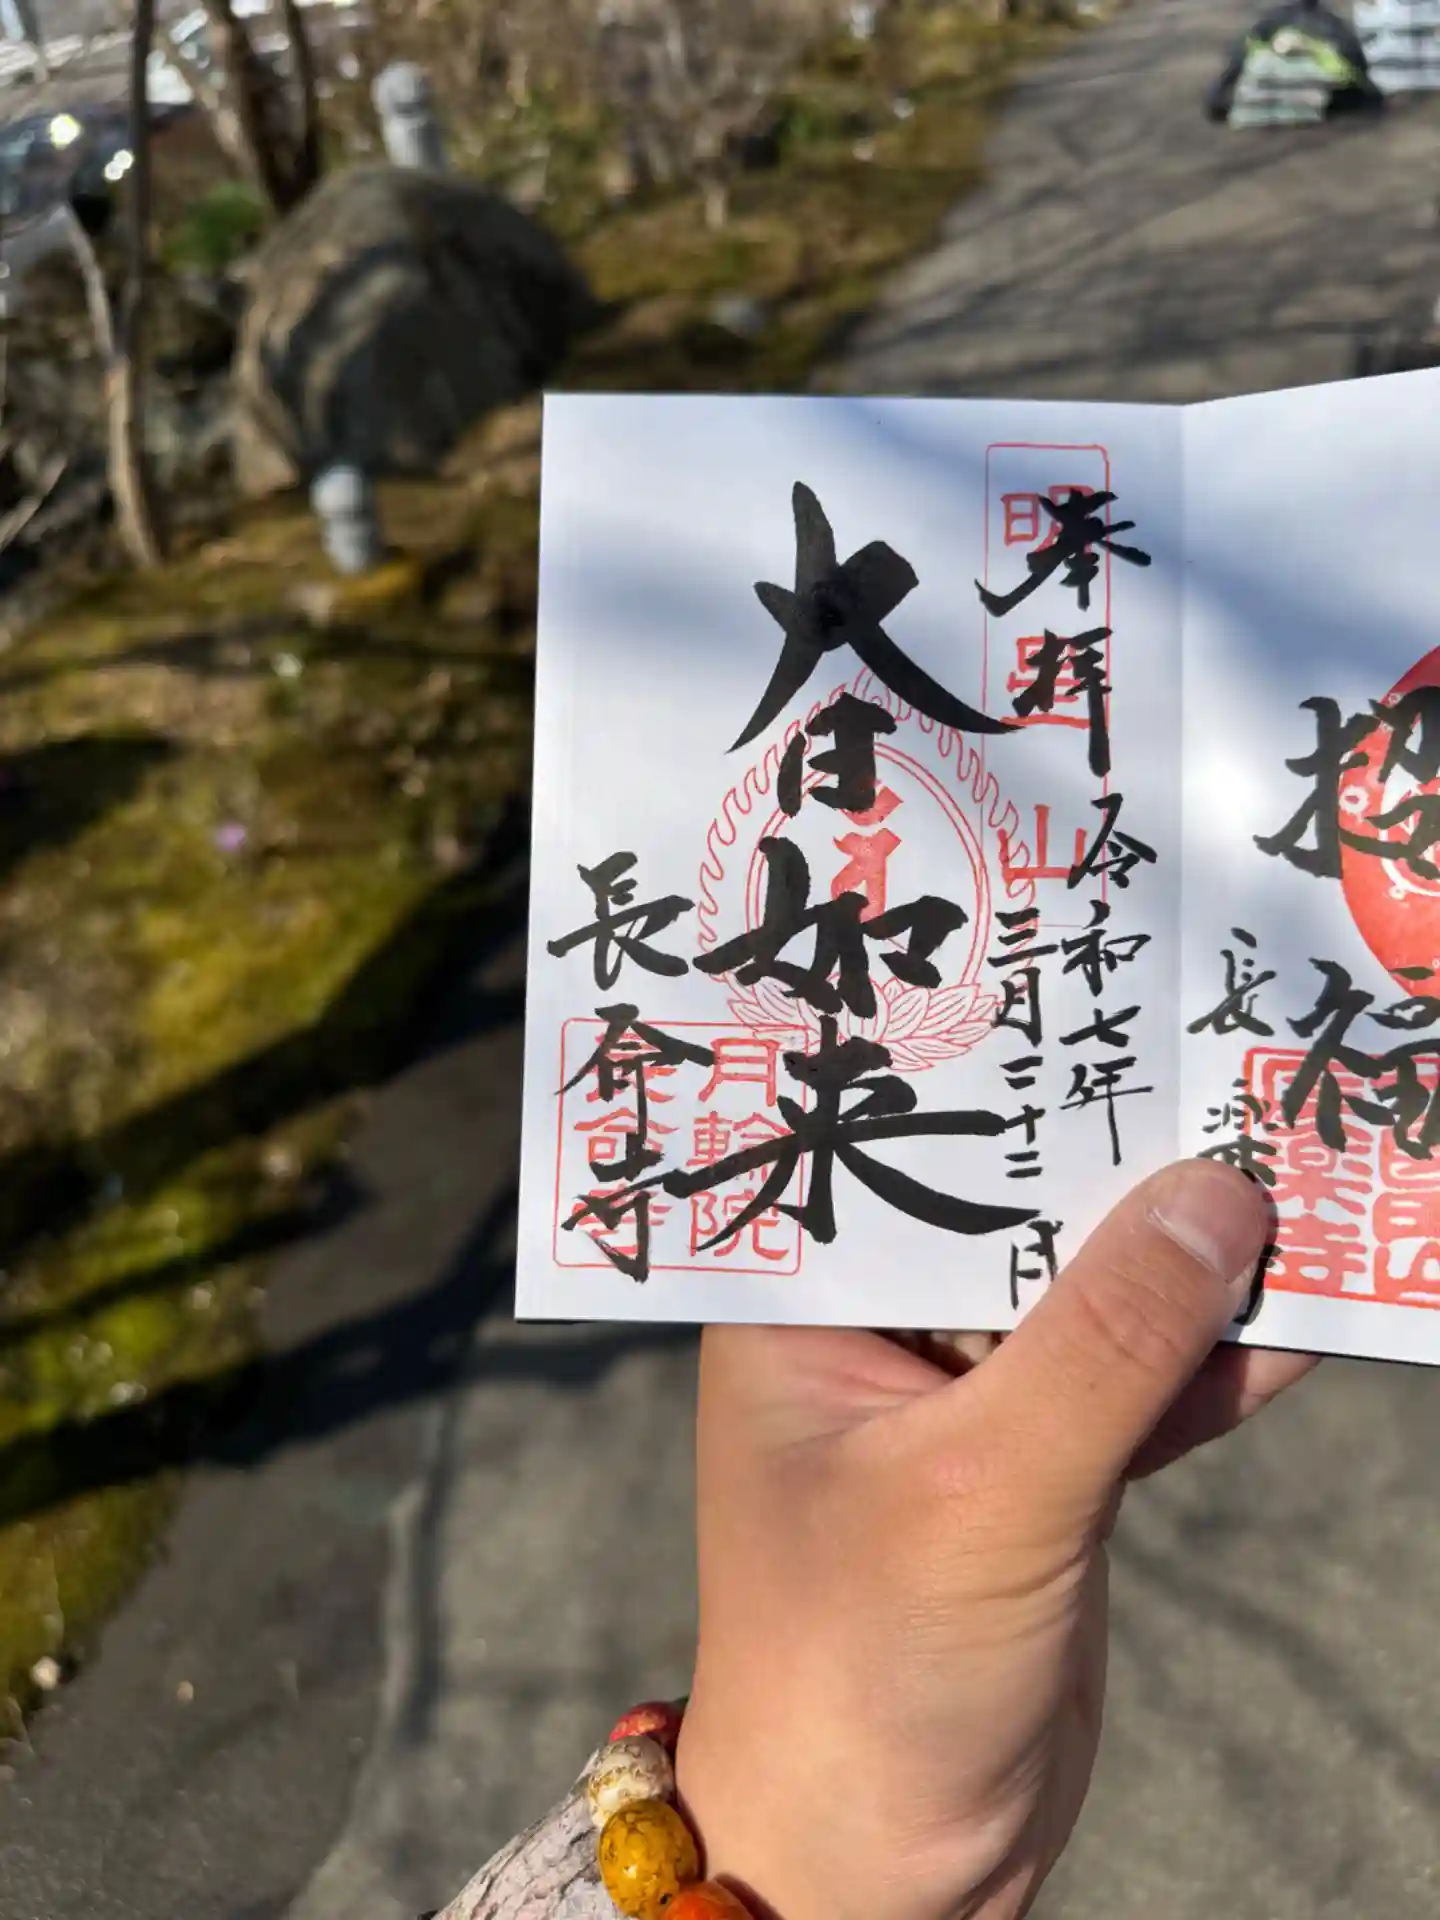 奉拝
令和七年
三月二十二日
明星山
大日如来
長命寺
月輪院
長命寺
招福
長
薬寺